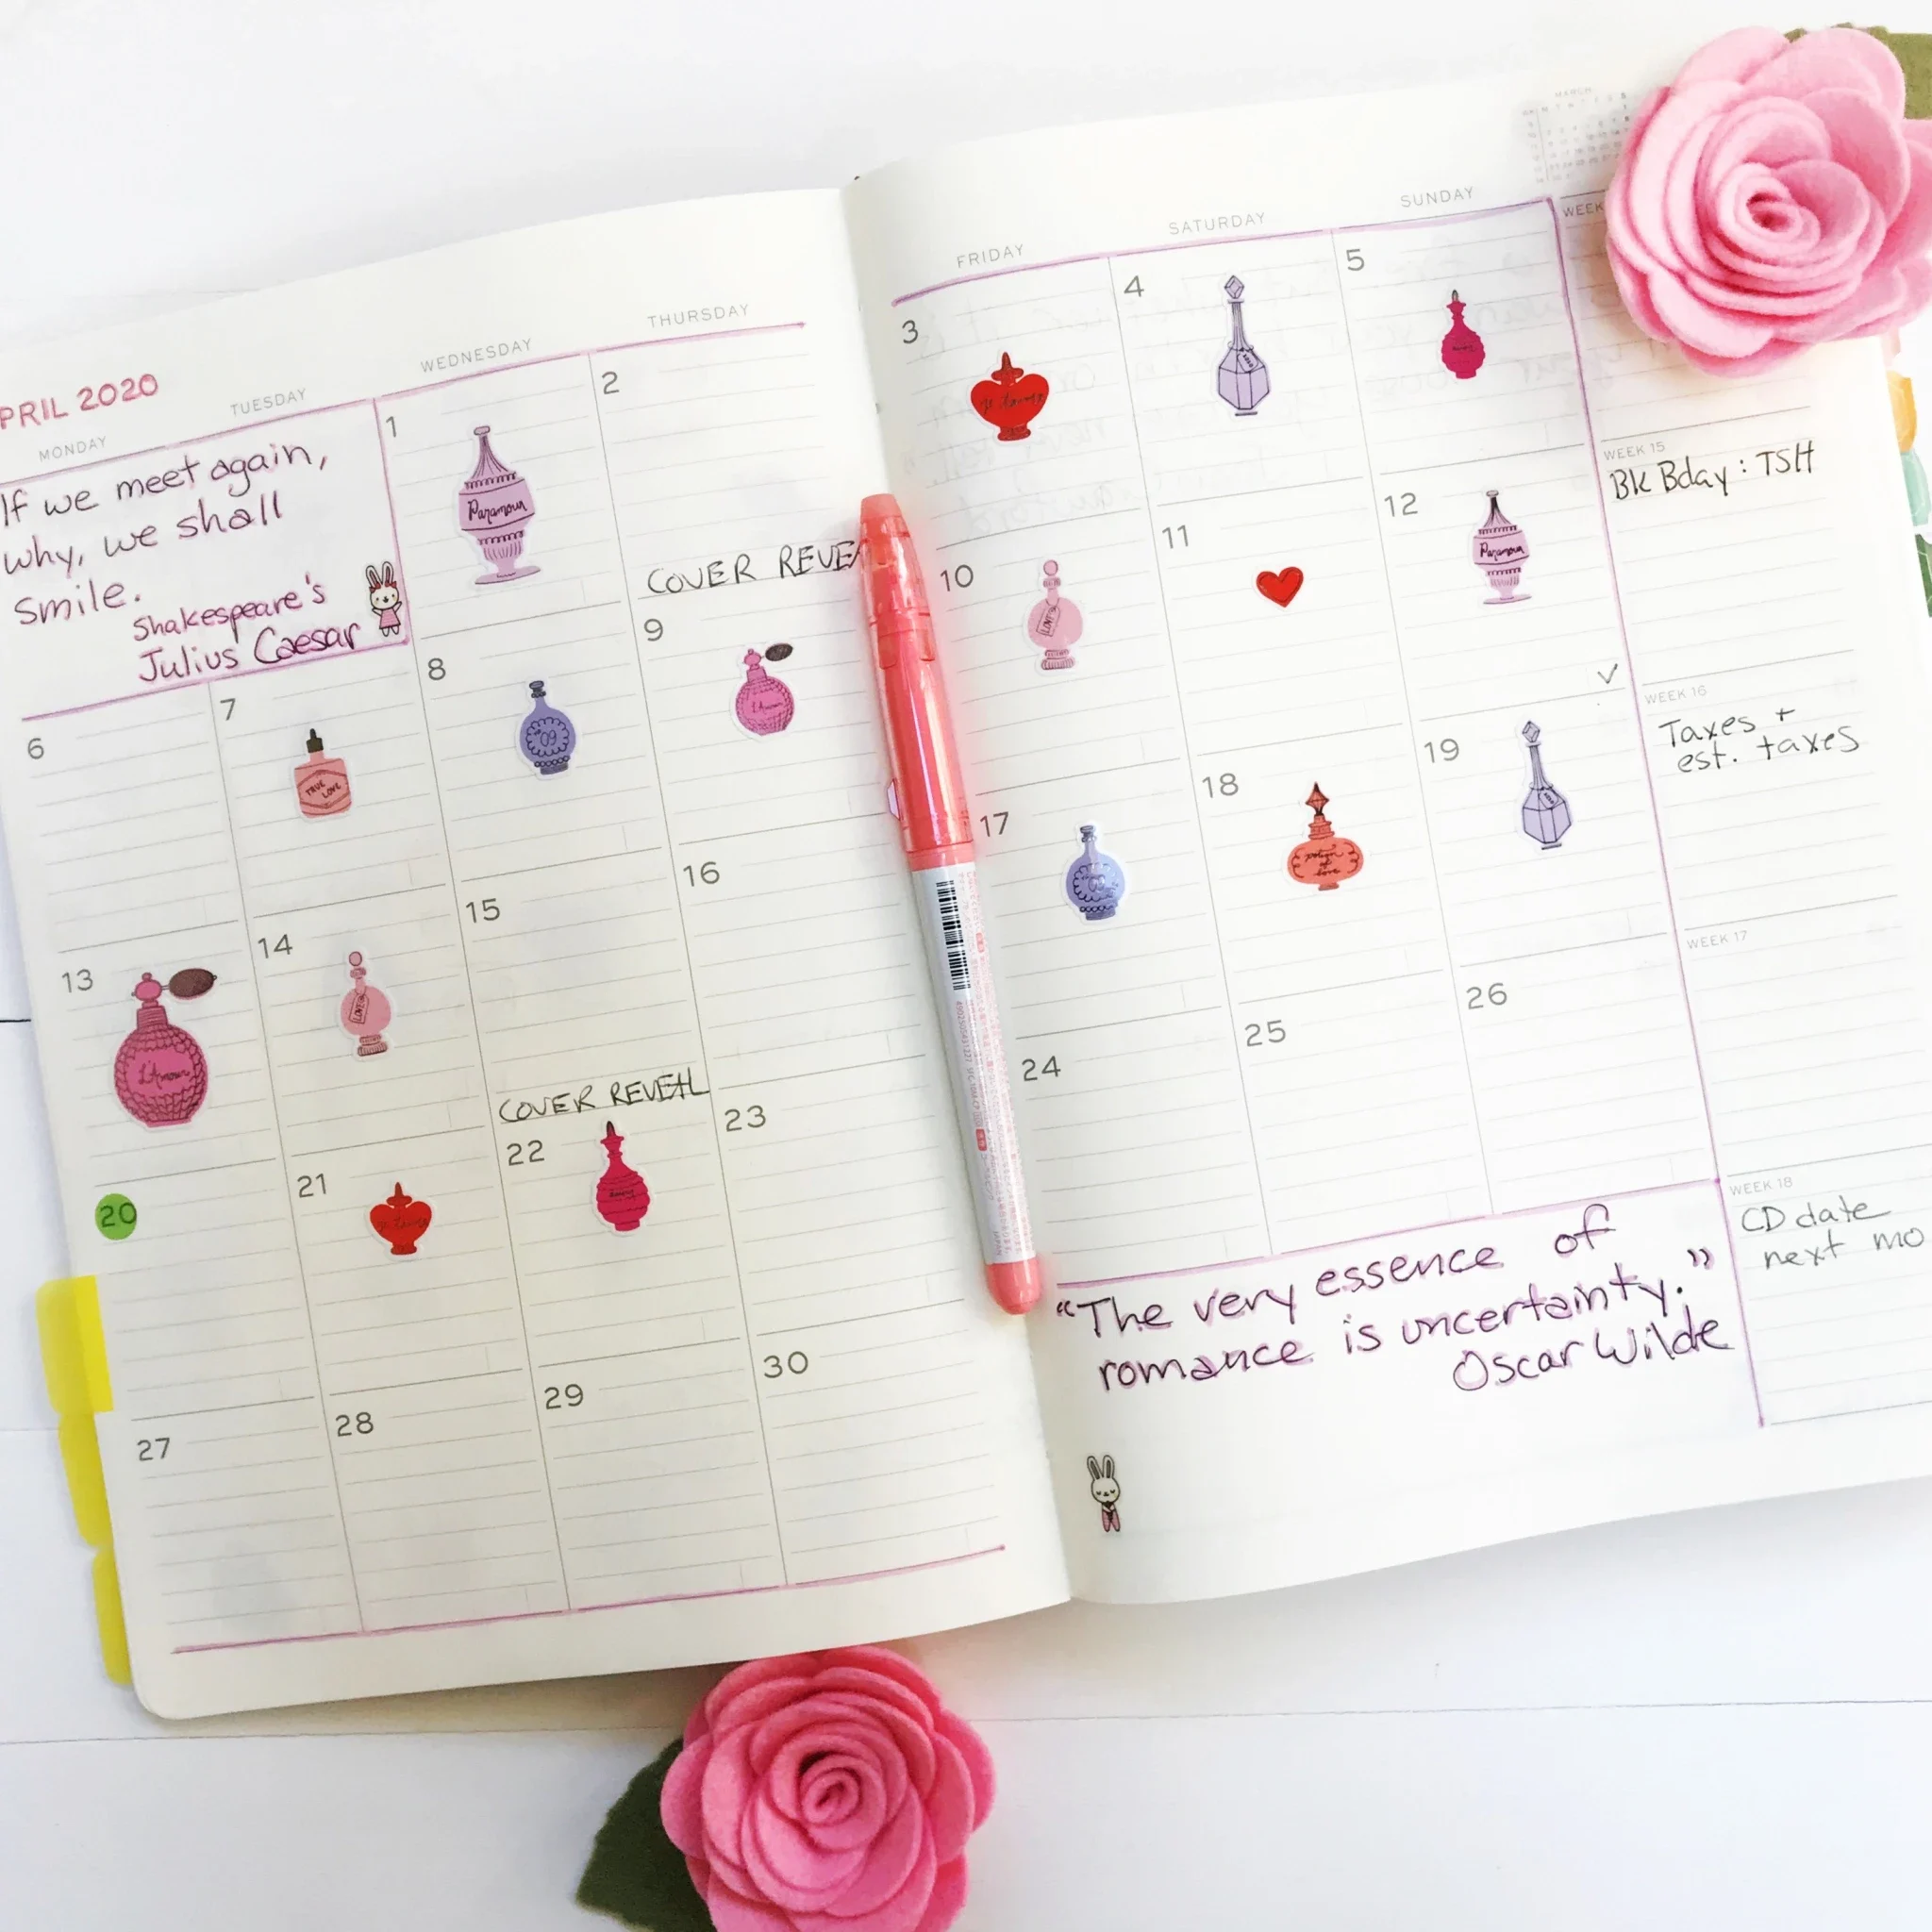 PRIL 2020
MONDAY
TUESDAY
WEDNESDAY
THURSDAY
If we meet again,
why, we shall
smile.
Shakespeare's
Julius Caesar
1
Paramour
2
COVER REVEA
6
7
TRUE
LOVE
8
09
9
L'Amour
13
L'Amour
14
LOVE
15
COVER REVEAL
16
20
21
22
23
27
28
29
30
MARCH
FRIDAY
SATURDAY
SUNDAY
WEEK
3
4
5
10
11
12
Paramour
WEEK 15
Bk Bday: TSH
17
18
potion
of
love
19
✓
WEEK 16
Taxes +
est. taxes
24
25
26
WEEK 17
WEEK 18
CD date
next mo
"The very essence of
romance is uncertainty."
Oscar Wilde